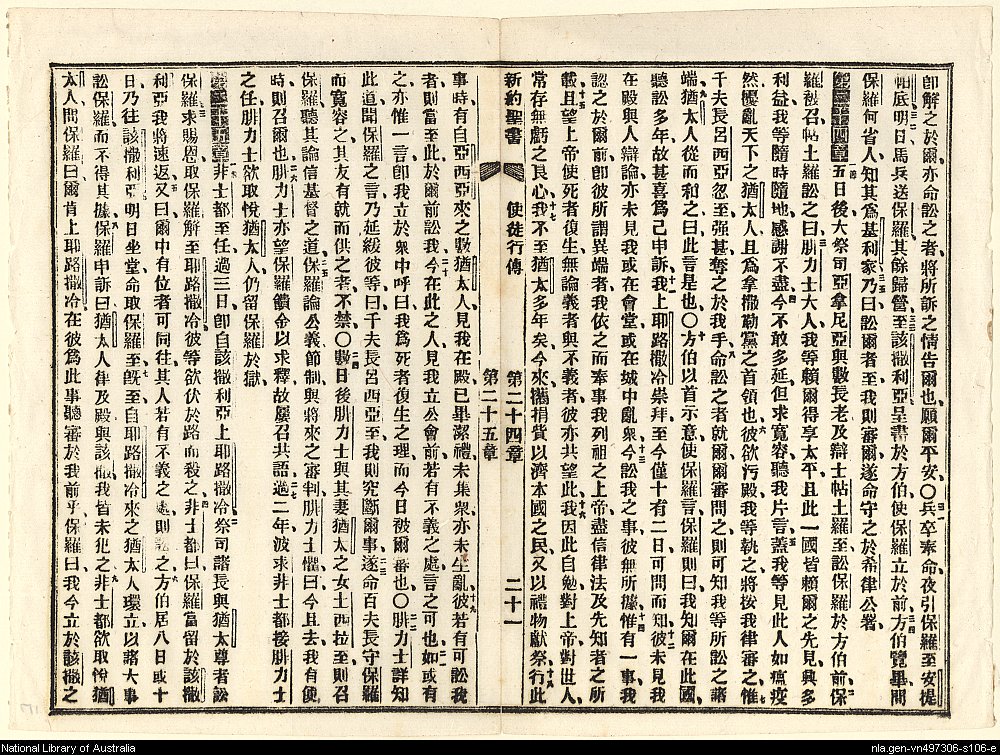 卽解之於爾、亦命訟之者將所訴之情告爾也、願爾平安、〇兵卒奉命夜引保羅至安提
帕底、明日馬兵送保羅、其餘歸營、至該撒利亞呈書於方伯、使保羅立於前、方伯覽畢、問
保羅何省人、知其爲基利家、乃曰、訟爾者至、我則審爾、遂命守之於希律公署、
第二十四章 五日後、大祭司亞拿尼亞與數長老、及辯士帖土羅至、訟保羅於方伯前、保
羅被召、帖土羅訟之曰、腓力士大人、我等賴爾得享太平、且此一國皆賴爾之先見、興多
利益、我等隨時隨地、感謝不盡、今不敢多延、但求寬容聽我片言、蓋我等見此人如瘟疫
然、擾亂天下之猶太人、且爲拿撒勒黨之首領也、彼欲污殿、我等執之、將按我律審之、惟
千夫長呂西亞忽至、强甚奪之於我手、命訟之者就爾、爾審問之、則可知我等所訟之諸
端、猶太人從而和之曰、此言是也、〇方伯以首示意使保羅言、保羅則曰、我知爾在此國、
聽訟多年、故甚喜爲己申訴、我上耶路撒冷崇拜、至今僅十有二日、可問而知、彼未見我
在殿與人辯論、亦未見我或在會堂、或在城中亂衆、今訟我之事、彼無所據、惟有一事、我
認之於爾前、卽彼所謂異端者、我依之而奉事我列祖之上帝、盡信律法及先知者之所
載、且望上帝使死者復生、無論義者與不義者、彼亦共望此、我因此自勉、對上帝對世人、
常存無虧之良心、我不至猶太多年矣、今來攜捐貲以濟本國之民、又以禮物獻祭、行此
新約聖書 使徒行傳 第二十四章 第二十五章 二十一
事時、有自亞西亞來之數猶太人、見我在殿、已畢潔禮、未集衆、亦未生亂、彼若有可訟我
者、則當至此於爾前訟我、今在此之人、見我立公會前、若有不義之處、言之可也、如或有
之、亦惟一言、卽我立於衆中呼曰、我爲死者復生之理、而今日被爾審也、〇腓力士詳知
此道、聞保羅之言、乃延緩彼等曰、千夫長呂西亞至、我則究斷爾事、遂命百夫長守保羅
而寬容之、其友有就而供之者不禁、〇數日後、腓力士與其妻猶太之女士西拉至、則召
保羅、聽其論信基督之道、保羅論公義節制、與將來之審判、腓力士懼曰、今且去、我有便
時、則召爾也、腓力士亦望保羅饋金以求釋、故屢召共語、過二年、波求非士都接腓力士
之任、腓力士欲取悅猶太人、仍留保羅於獄、
第二十五章 非士都至任、過三日、卽自該撒利亞上耶路撒冷、祭司諸長與猶太尊者訟
保羅、求賜恩、取保羅解至耶路撒冷、彼等欲伏於路而殺之、非士都曰、保羅當留於該撒
利亞、我將速返、又曰、爾中有位者可同往、其人若有不義之處、則訟之、方伯居八日或十
日、乃往該撒利亞、明日坐堂、命取保羅至、旣至、自耶路撒冷來之猶太人環立、以諸大事
訟保羅、而不得其據、保羅申訴曰、猶太人律及殿與該撒、我皆未犯之、非士都欲取悅猶
太人、問保羅曰、爾肯上耶路撒冷、在彼爲此事聽審於我前乎、保羅曰、我今立於該撒之
National Library of Australia
nla.gen-vn497306-s106-e